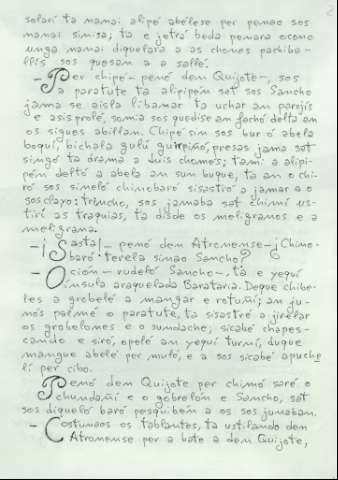 2
solarí ta mamai alipé abélese per penao sos
mamai simisa, ta e jotrá beda penara ocono
unga mamai diquelara a as chones pachiba-
llís sos quesan a a sallé.
—Per chipé— penó dem Quijote—, sos
a paratute ta alipipén sat sos Sancho
jama se aisla libanar ta uchar an parojís
e asisprolé, somia sos quedise an jachó deltá an
os sigues abillan. Chipé sin sos bur ó abela
boquí, bichala gulú guripiño, presas jama sat
singó ta drama a duis chomos; tami a alipi-
pén deltó a abela an sun buque, ta an o chi-
ró sos simeló chinobaró sisastró a jamar a o
sosclayo: trincho, sos jamaba sat chimí us-
tirí as traquias, ta disde os meligranos e a
meligrana.
—¡Sasta!— penó dem Atronense—¿Chino-
baró terela simao Sancho?
—Ocion— rudeló Sancho—, ta e yequí
ínsula araquelada Barataria. Deque chibe-
les a grobelé a mangar e rotuñí; an ju-
mós palmé o paratute, ta sisastré a jirelar
os grobelomes e o sundache; sicabé chapes-
cando e siró, opelé an yequí turní, duque
mangue abelé per muló, e a sos sicabé apuche-
lí per cibo.
Penó dem Quijote per chimó saró o
chundañí e o gobrolón e Sancho, sat
sos diqueló baró pesquibén a os sos junaban.
—Costumaos os tablantes, ta ustilando dem
Atronense por a bate a dem Quijote,